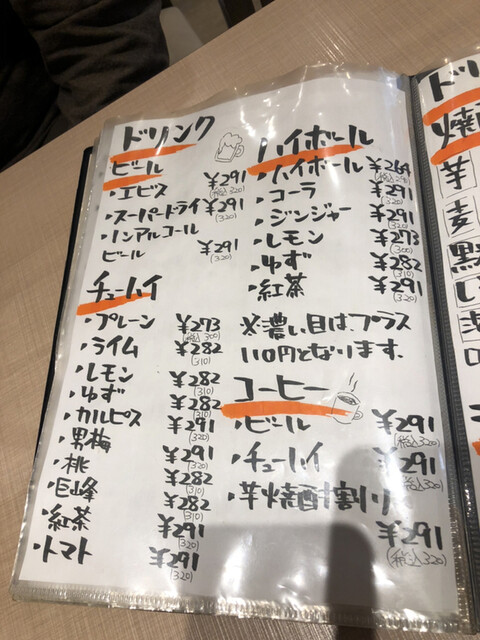 ドリンク
ビール
・エビス ¥291
(税込320)
・スーパードライ ¥291
(320)
・ノンアルコール
ビール ¥291
(320)
チューハイ
・プレーン ¥273
(税込300)
・ライム ¥282
(310)
・レモン ¥282
(310)
・ゆず ¥282
(310)
・カルピス ¥291
(320)
・男梅 ¥282
(310)
・桃 ¥282
(310)
・巨峰 ¥282
(310)
・紅茶 ¥291
(320)
・トマト ¥291
(320)
ハイボール
・ハイボール ¥264
・コーラ ¥291
(320)
・ジンジャー ¥291
(320)
・レモン ¥273
(300)
・ゆず ¥282
(310)
・紅茶 ¥291
(320)
※濃い目は、プラス
110円となります。
コーヒー
・ビール ¥291
(税込320)
・チューハイ ¥291
(税込320)
・芋焼酎割り
¥291
(税込320)
ドリ
焼
芋
麦
黒